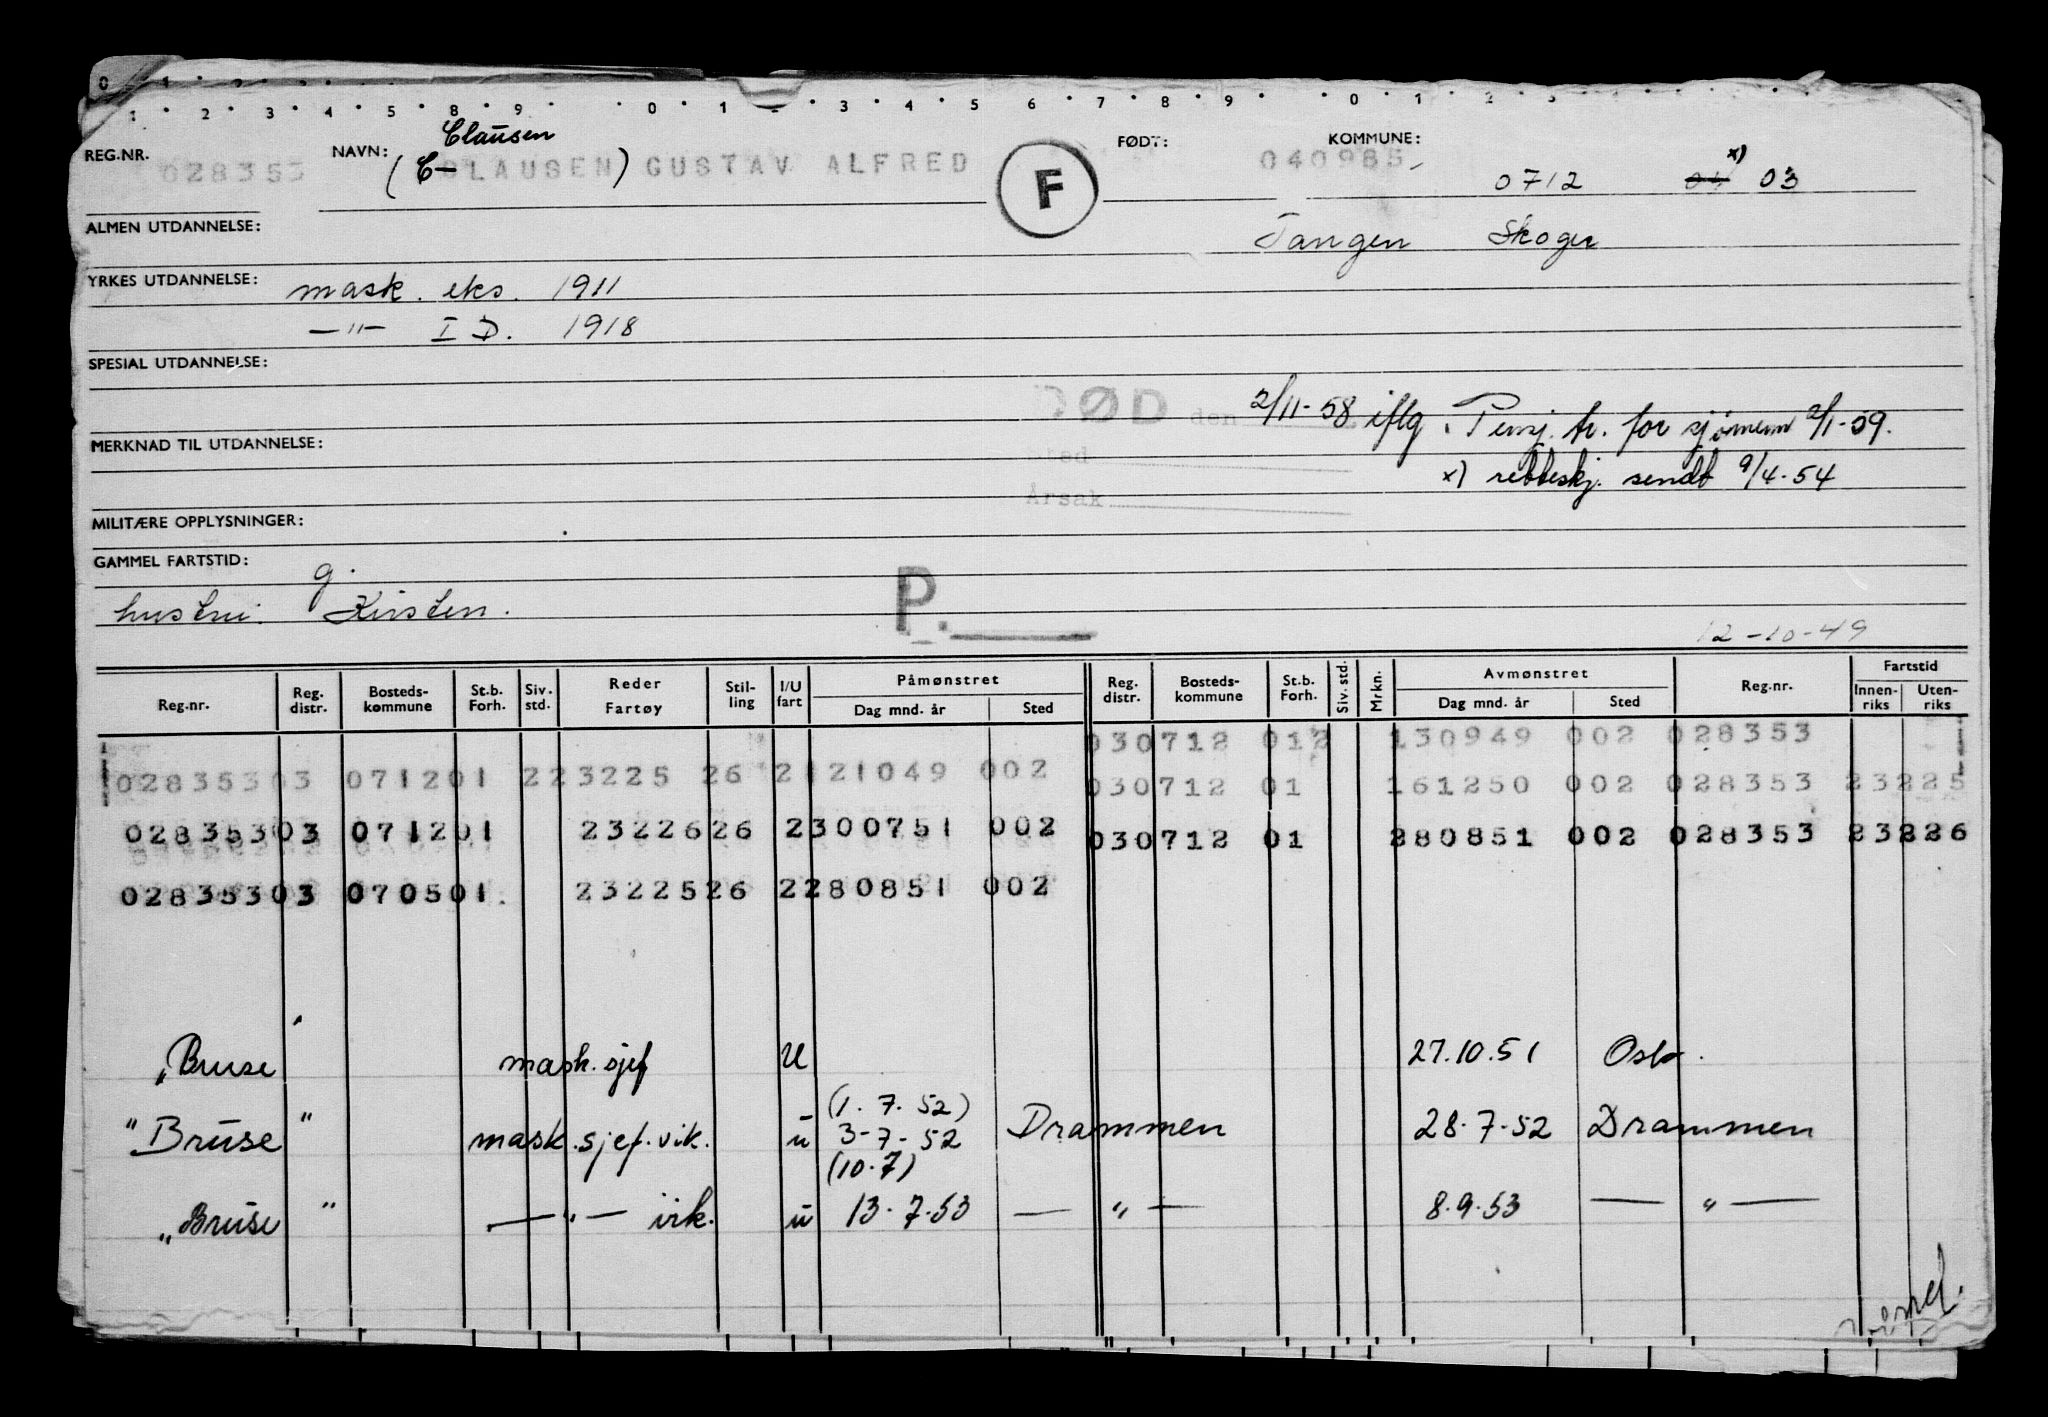 REG.NR. 028353 NAVN: (C- CLAUSEN) GUSTAV ALFRED FØDT: 040985 KOMMUNE:
Clausen
F
0712 04 x) 03
ALMEN UTDANNELSE: Tangen Skoger
YRKES UTDANNELSE: mask. eks. 1911
—"— I D. 1918
SPESIAL UTDANNELSE:
DØD den 2/11-58 iflg. Pensj. tr. for sjømenn 2/1-59.
MERKNAD TIL UTDANNELSE:
Sted
x) rettskj. sendt 9/4-54
Årsak
MILITÆRE OPPLYSNINGER:
GAMMEL FARTSTID:
g.
hustru: Kirsten.
P.
12-10-49
Reg.nr. Reg. distr. Bosteds-kommune St.b. Forh. Siv. std. Reder Fartøy Stil-ling I/U fart Påmønstret Dag mnd. år Sted Reg. distr. Bosteds-kommune St.b. Forh. Siv. std. Mrkn. Avmønstret Dag mnd. år Sted Reg.nr. Fartstid Innen-riks Uten-riks
030712 012 130949 002 028353
02835303 071201 223225 26 2121049 002 030712 01 161250 002 028353 23225
02835303 071201 2322626 2300751 002 030712 01 280851 002 028353 23226
02835303 070501. 2322526 2280851 002
"Bruse" mask. sjef U 27.10.51 Oslo.
(1.7.52)
"Bruse" mask. sjef. vik. u 3-7-52 Drammen 28.7-52 Drammen
(10.7)
"Bruse" —"— vik. u 13.7.53 —"— 8.9.53 —"—